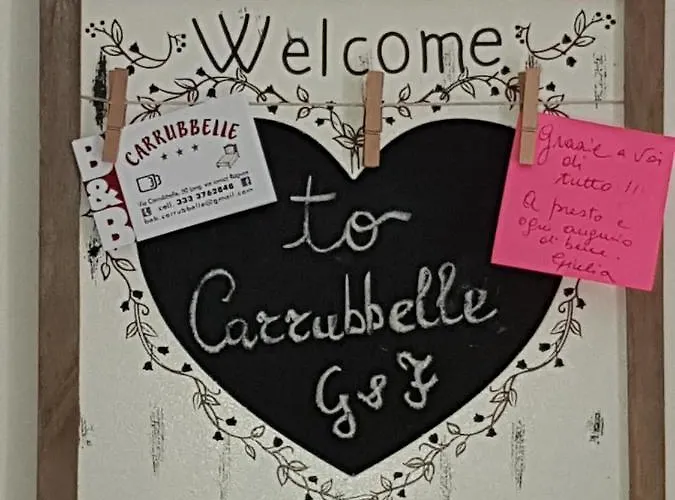 Welcome
B&B
CARRUBBELLE
Via Carrubbelle, 50 (ang. via
cell. 333 3762848
beb.carrubbelle@gmail.com
to
Carrubbelle
G & F
Grazie a Voi
di
tutto !!!
A presto e
ogni augurio
di bene.
Giulia